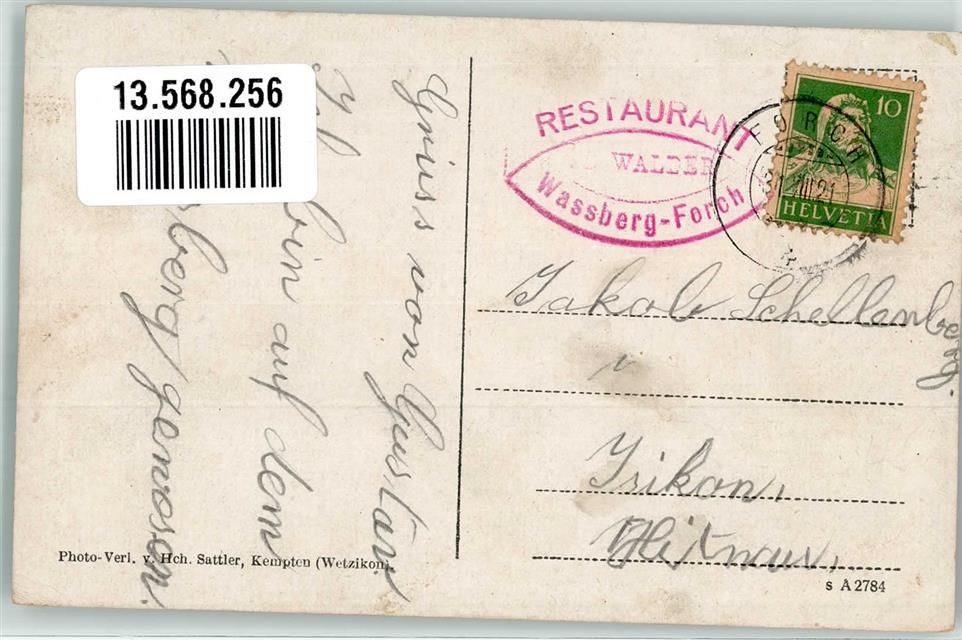 13.568.256
Gruss von Gustav
Ich bin auf dem
berg gewesen.
RESTAURANT
WALDER
Wassberg-Forch
FORCH
10
HELVETIA
Jakob Schellenberg.
i
Isikon,
Hittnau.
Photo-Verl. v. Hch. Sattler, Kempten (Wetzikon)
s A 2784